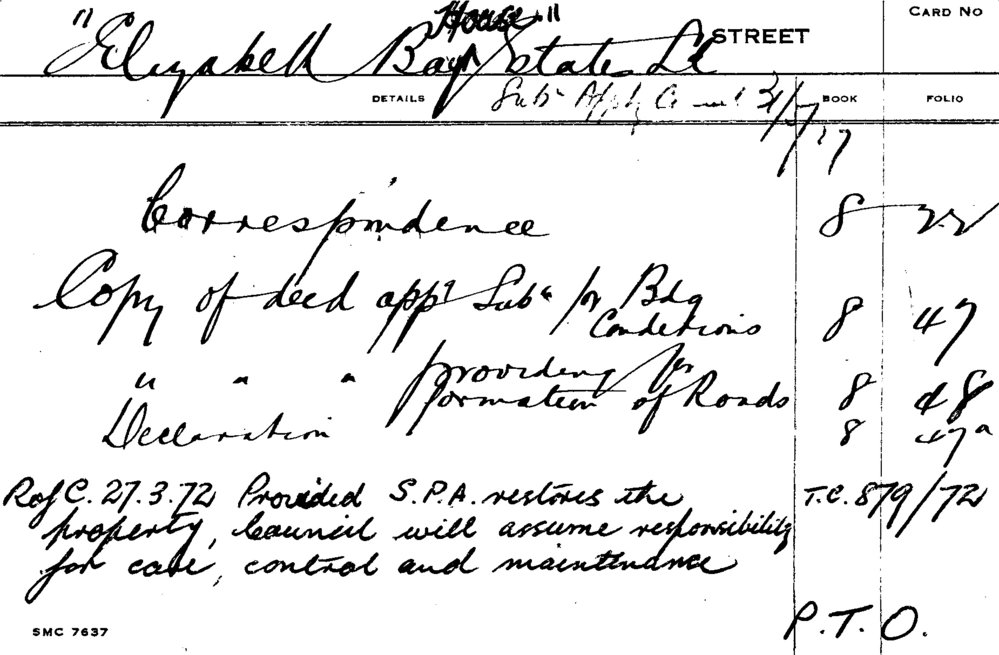 CARD NO
House"
"Elizabeth Bay Estate Ld STREET
DETAILS BOOK FOLIO
Subn Appd Council 31/7/17
Correspondence 8 22
Copy of deed appg Subn for Bdg
Conditions 8 47
" " " providing for
formation of Roads 8 48
Declaration 8 47a
R of C. 27.3.72 Provided S.P.A. restores the T.C. 879/72
property, Council will assume responsibility
for care, control and maintenance
SMC 7637
P.T.O.